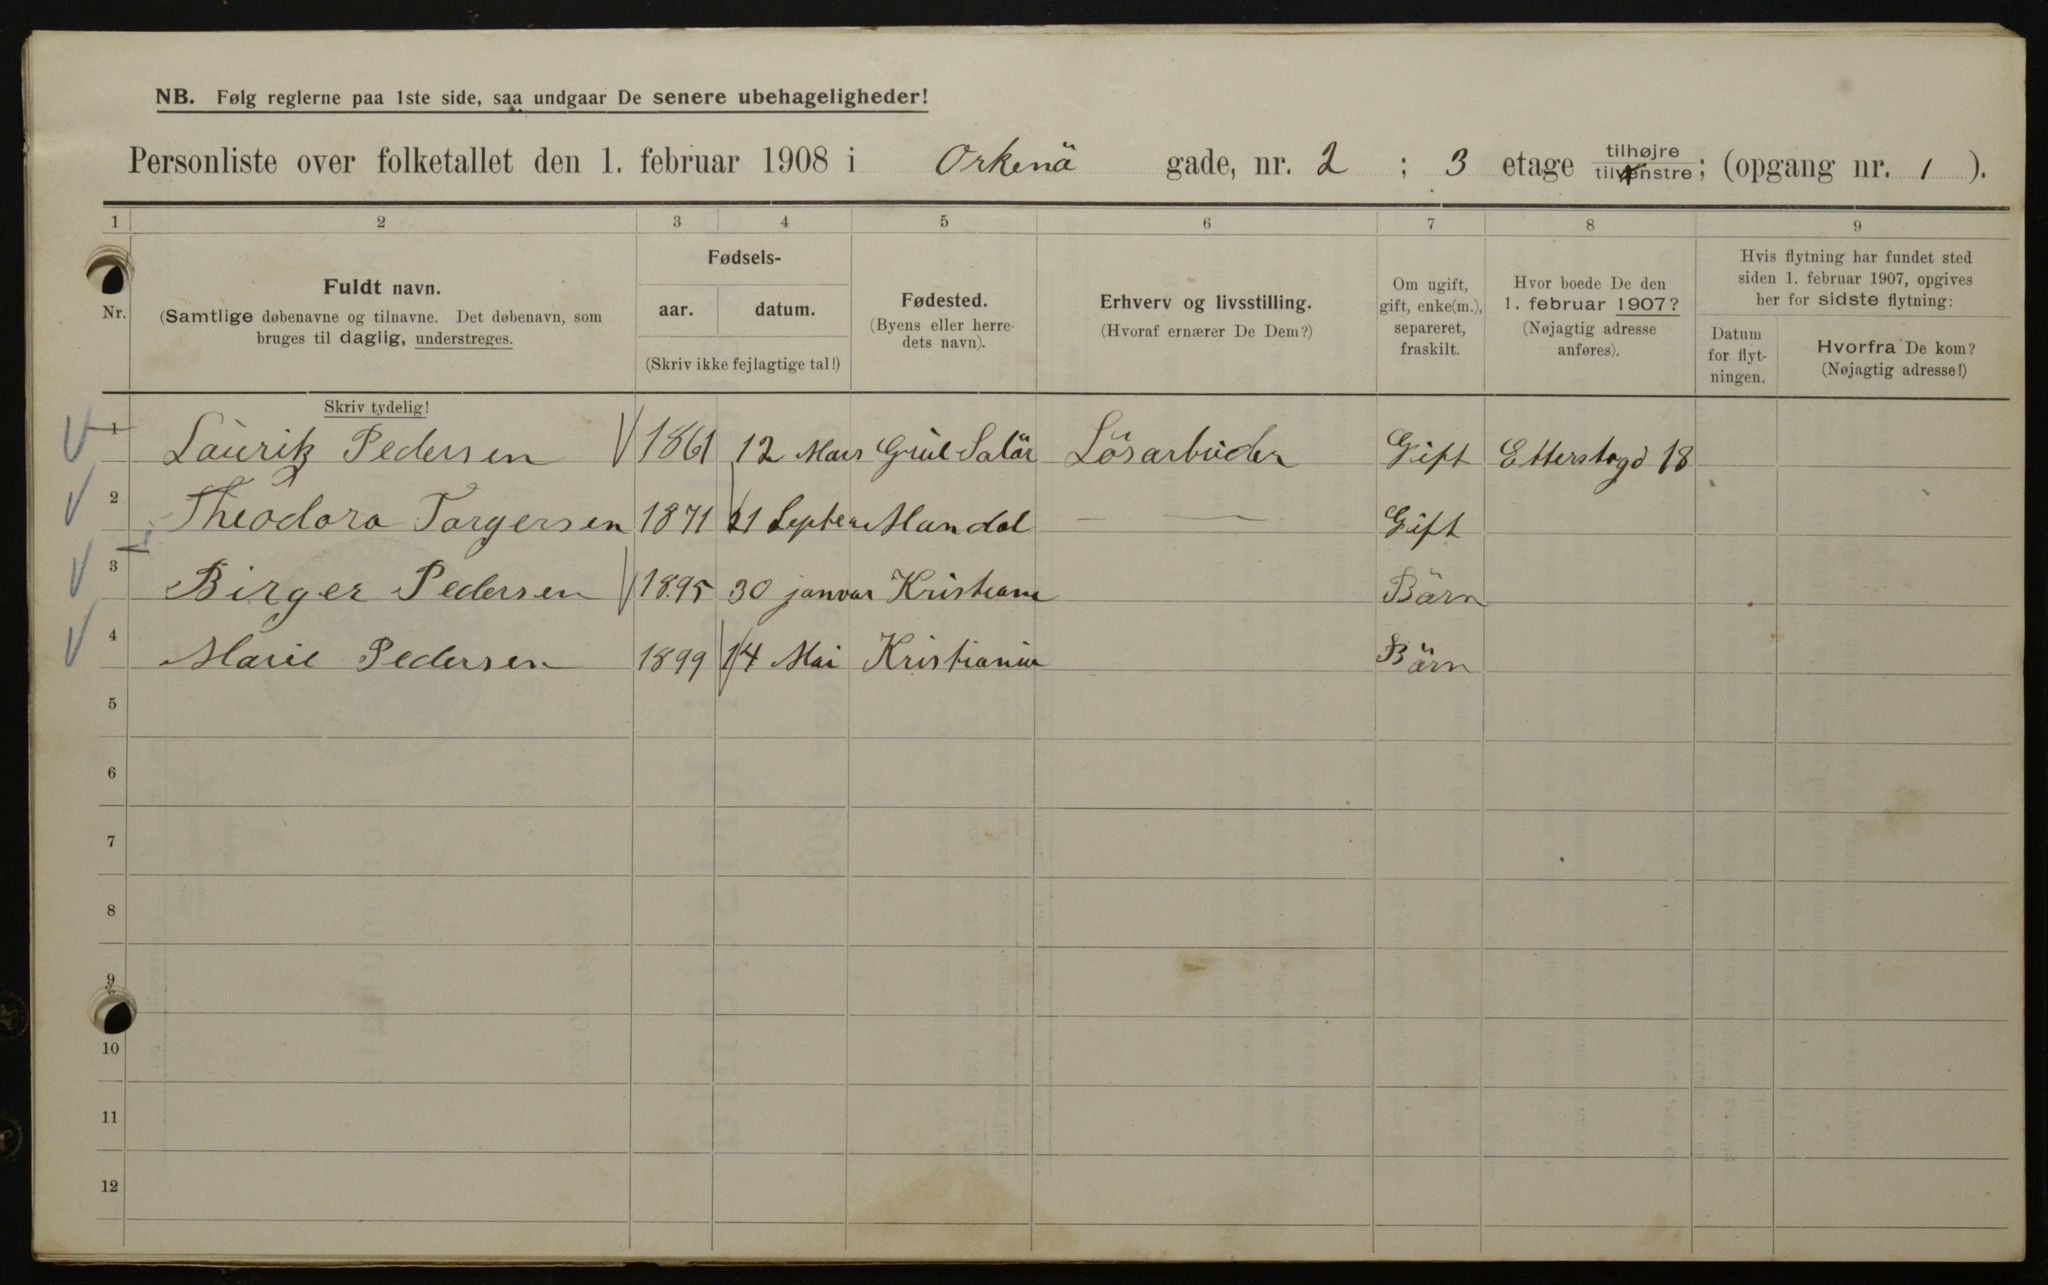 NB. Følg reglerne paa 1ste side, saa undgaar De senere ubehageligheder!
Personliste over folketallet den 1. februar 1908 i Orkenä gade, nr. 2 ; 3 etage tilhøjre tilvenstre; (opgang nr. 1 ).
1 2 3 4 5 6 7 8 9
Nr.
Fuldt navn.
(Samtlige døbenavne og tilnavne. Det døbenavn, som
bruges til daglig, understreges.
Skriv tydelig!
Fødsels-
aar. datum.
(Skriv ikke fejlagtige tal!)
Fødested.
(Byens eller herre-
dets navn).
Erhverv og livsstilling.
(Hvoraf ernærer De Dem?)
Om ugift,
gift, enke(m.),
separeret,
fraskilt.
Hvor boede De den
1. februar 1907?
(Nøjagtig adresse
anføres).
Hvis flytning har fundet sted
siden 1. februar 1907, opgives
her for sidste flytning:
Datum
for flyt-
ningen.
Hvorfra De kom?
(Nøjagtig adresse!)
1 Laurik Pedersen 1861 12 Mars Solör Lösarbuder Gift 18
2 Theodora Torgersen 1871 21 Mandal — — Gift
3 Birger Pedersen 1895 30 januar Bärn
4 Marie Pedersen 1899 14 Mai Kristiania Bärn
5
6
7
8
9
10
11
12